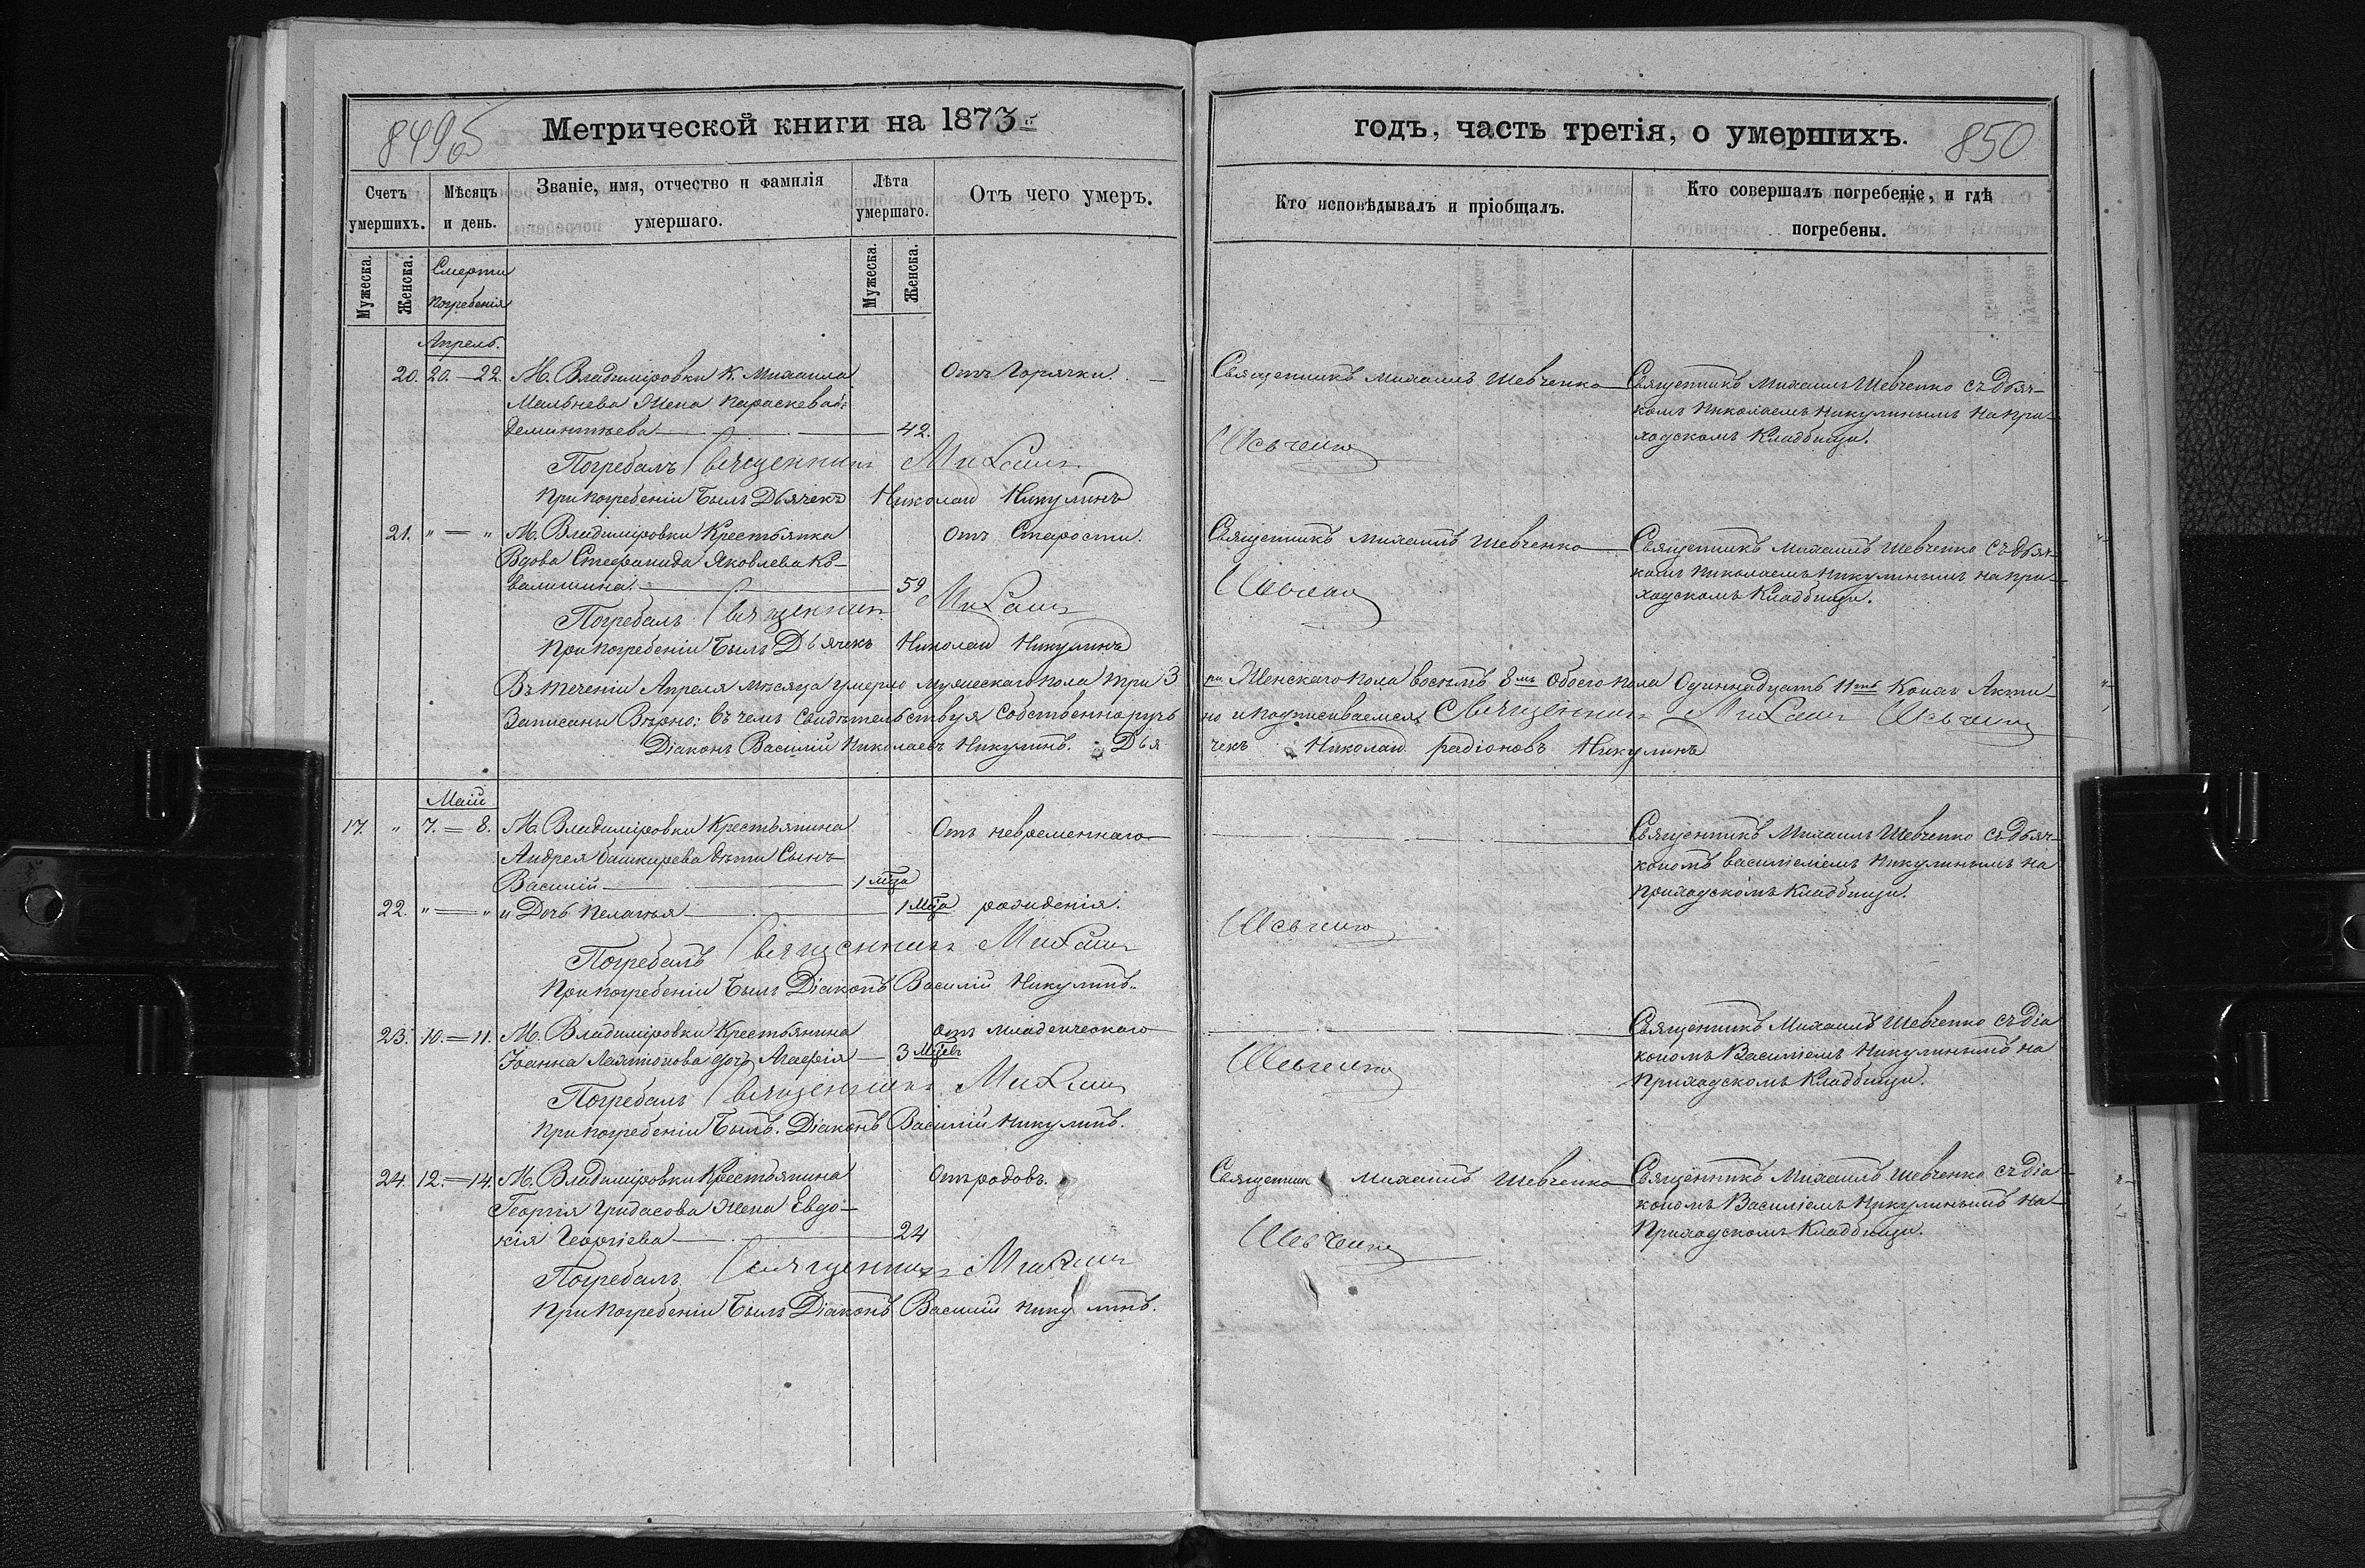 849об
Метрической книги на 1873й
Счетъ умершихъ.
Мѣсяцъ и день.
Званіе, имя, отчество и фамилія умершаго.
Лѣта умершаго.
Отъ чего умеръ.
Мужеска.
Женска.
Смерти
погребенія
Мужеска.
Женска.
Апрель.
20. 20. — 22. М. Владиміровки К. Михаила Отъ Горячки.
Мальнева Жена Параскева
Деминтьева 42.
Погребалъ Священникъ Михаилъ
При погребеніи былъ Дьячекъ Николай Никулинъ
21. " = " М. Владиміровки Крестьянка Отъ Старости.
Вдова Стефанида Яковлева Ко-
валишина. 59
Погребалъ Священникъ Михаилъ
При погребеніи былъ Дьячекъ Николай Никулинъ
Въ теченіи Апреля мѣсяца умерло мужескаго пола три 3
Записаны Вѣрно: въ чемъ свидѣтельствуя собственноручь
Діаконъ Василій Николаевъ Никулинъ. Дья
Маій
17. " 7. = 8. М. Владиміровки Крестьянина Отъ невременнаго
Андрея Башкирева дѣти Сынъ
Василій 1 Мца
22. " = " и Дочь Пелагья 1 Мца рожденія.
Погребалъ Священникъ Михаилъ
При погребеніи былъ Діаконъ Василій Никулинъ.
23. 10. = 11. М. Владиміровки Крестьянина Отъ младенческаго
Іоанна дочь Агафія 3 Мцевъ
Погребалъ Священникъ Михаилъ
При погребеніи былъ. Діаконъ Василій Никулинъ.
24. 12. = 14. М. Владиміровки Крестьянина Отъ родовъ.
Георгія Гридасова Жена Евдо-
кія Георгіева 24
Погребалъ Священникъ Михаилъ
При погребеніи былъ Діаконъ Василій Никулинъ.
годъ, часть третія, о умершихъ.
850
Кто исповѣдывалъ и пріобщалъ.
Кто совершалъ погребеніе, и гдѣ
погребены.
Священникъ Михаилъ Шевченко Священникъ Михаилъ Шевченко съ Дьяч-
комъ Николаемъ Никулинымъ на при-
ходскомъ Кладбищи.
Шевченко
Священникъ Михаилъ Шевченко Священникъ Михаилъ Шевченко съ дьяч-
комъ Николаемъ Никулинымъ на при-
ходскомъ Кладбищи.
Шевченко
ри Женскаго пола восемь 8мь обоего пола Одиннадцать 11ть
но и подписываемся Священникъ Михаилъ Шевченко
чекъ Николай радіоновъ Никулинъ
Священникъ Михаилъ Шевченко съ Дьяч-
кономъ Никулинымъ на
приходскомъ Кладбищи.
Шевченко
Священникъ Михаилъ Шевченко съ Діа
кономъ Василіемъ Никулинымъ на
Приходскомъ Кладбищи.
Шевченко
Священник Михаилъ Шевченко Священникъ Михаилъ Шевченко съ Діа-
кономъ Василіемъ Никулинымъ на
Приходскомъ Кладбищи.
Шевченко